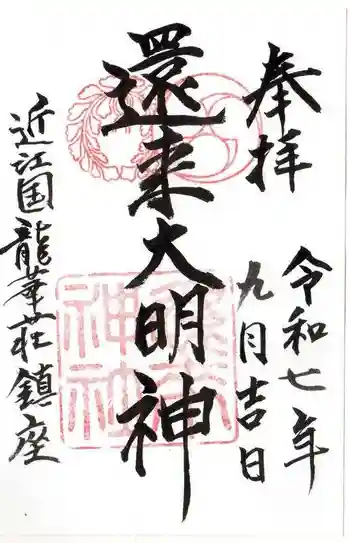 奉拝
令和七年
九月吉日
還来大明神
近江国龍華荘鎮座
還来神社